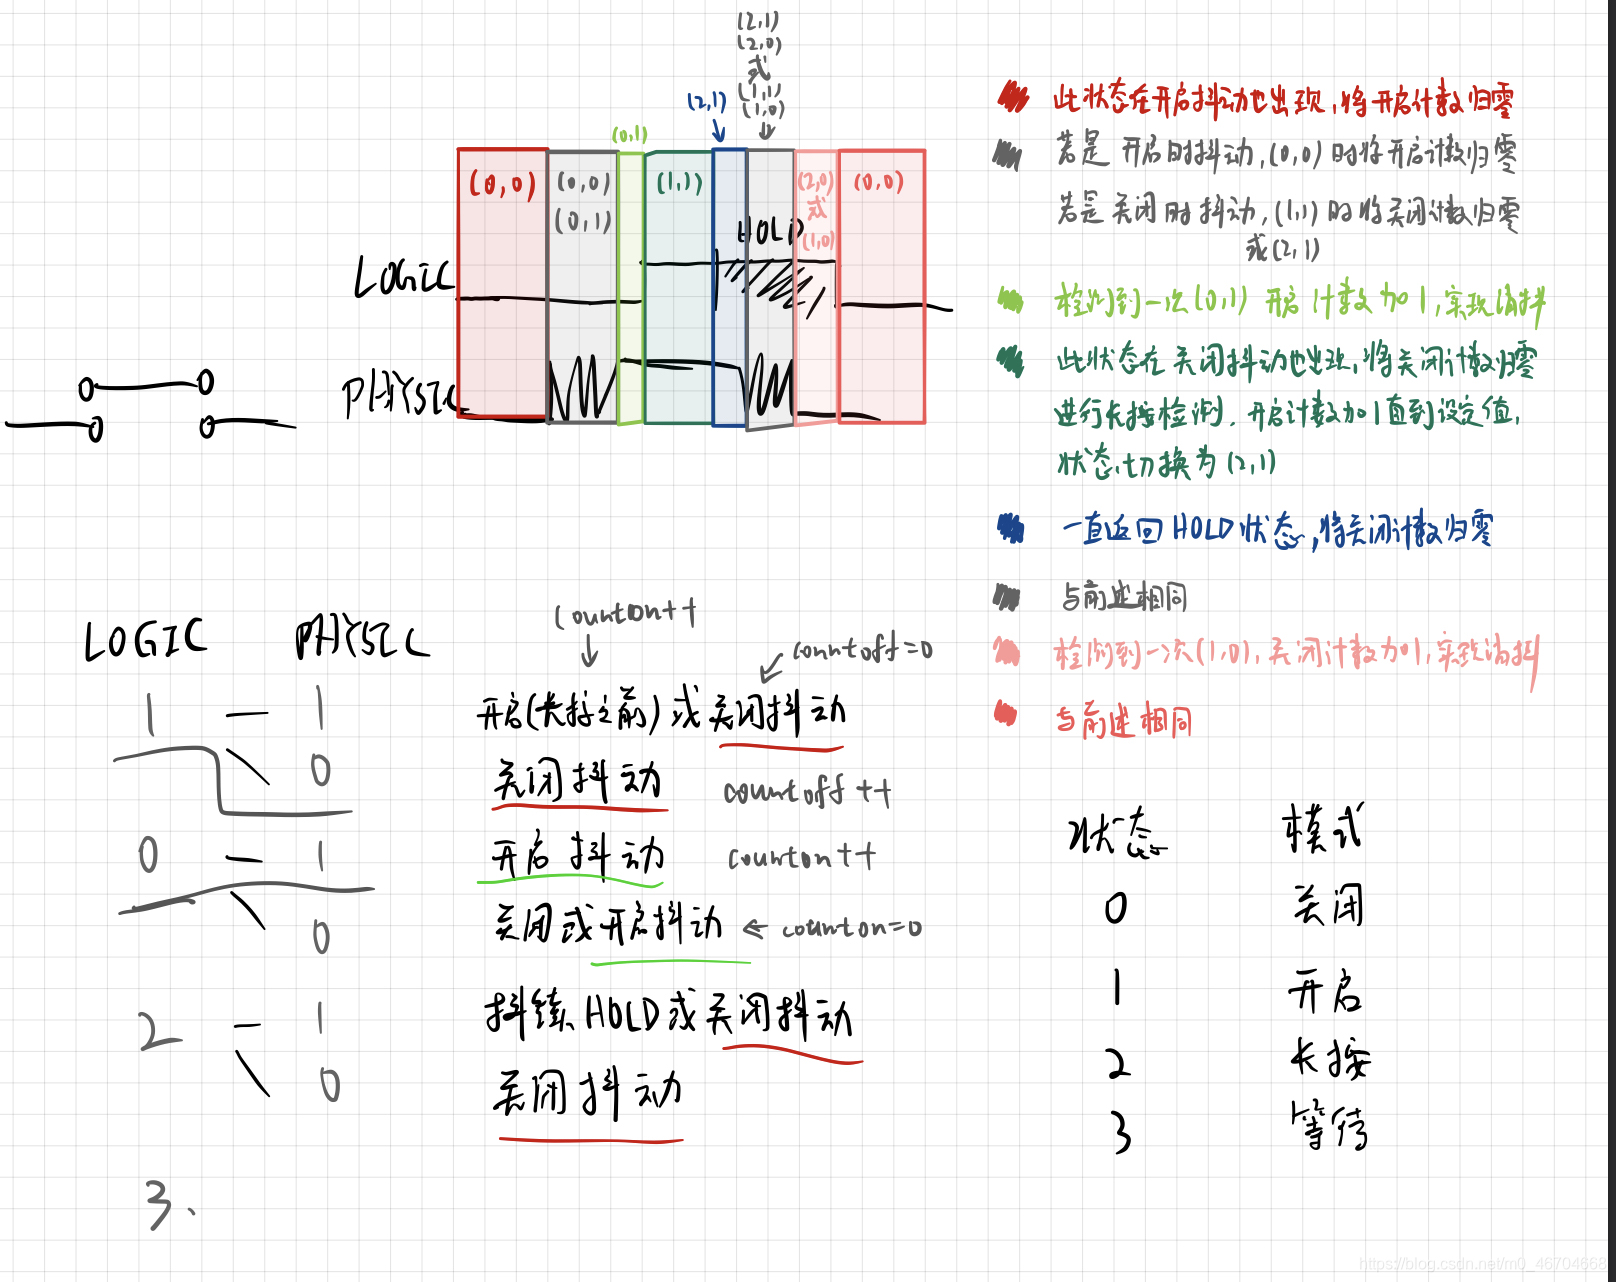 (2,1)
(2,0)
或
(1,1)
(1,0)
(2,1)
(0,1)
(0,0)
(0,0)
(0,1)
(1,1)
HOLD
(2,0)
或
(1,0)
(0,0)
LOGIC
PHYSIC
此状态在开启抖动也出现,将开启计数归零
若是 开启时抖动,(0,0)时将开启计数归零
若是关闭时抖动,(1,1)时将关闭计数归零
或(2,1)
检测到一次(0,1) 开启计数加1,实现消抖
此状态在关闭抖动也出现,将关闭计数归零
进行长按检测. 开启计数加1直到设定值,
状态切换为(2,1)
一直返回HOLD状态,将关闭计数归零
与前述相同
检测到一次(1,0),关闭计数加1,实现消抖
与前述相同
LOGIC PHYSIC
counton++
countoff=0
1 1 开启(长按之前)或关闭抖动
0 关闭抖动 countoff++
0 1 开启抖动 counton++
0 关闭或开启抖动 counton=0
2 1 持续HOLD或关闭抖动
0 关闭抖动
3、
状态 模式
0 关闭
1 开启
2 长按
3 等待
https://blog.csdn.net/m0_46704668